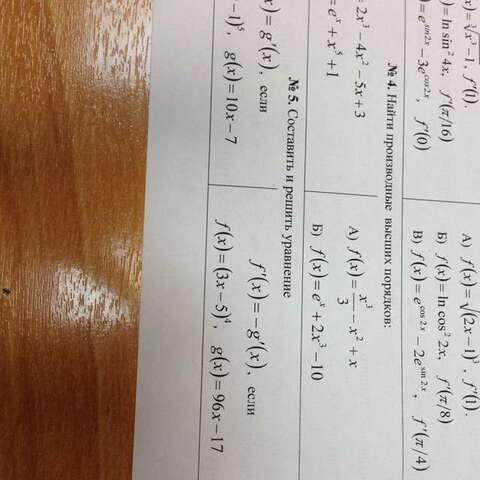 x) = ∛x³ − 1, f'(1).
) = ln sin² 4x, f'(π/16)
) = e^(sin 2x) − 3e^(cos 2x), f'(0)
А) f(x) = √(2x − 1)³, f'(1).
Б) f(x) = ln cos² 2x, f'(π/8)
В) f(x) = e^(cos 2x) − 2e^(sin 2x), f'(π/4)
№ 4. Найти производные высших порядков:
= 2x³ − 4x² − 5x + 3
= e^x + x⁵ + 1
А) f(x) = x³/3 − x² + x
Б) f(x) = e^x + 2x³ − 10
№ 5. Составить и решить уравнение
x) = g'(x), если
−1)⁵, g(x) = 10x − 7
f'(x) = −g'(x), если
f(x) = (3x − 5)⁴, g(x) = 96x − 17